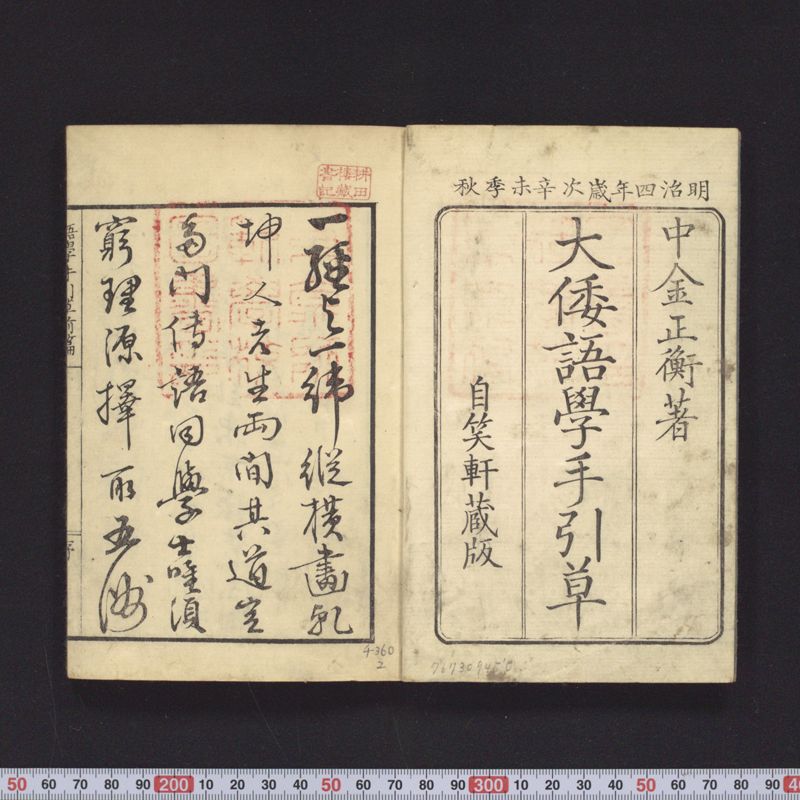 明治四年歳次辛未季秋
中金正衡著
大倭語學手引草
自笑軒蔵版
一經与一緯縱横畫乾
坤人者生両間其道豈
多門傳語同學士唯須
窮理源擇取五洲
語學手引草前篇
序
4-360
2
50 60 70 80 90 200 10 20 30 40 50 60 70 80 90 300 10 20 30 40 50 60 70 80 90